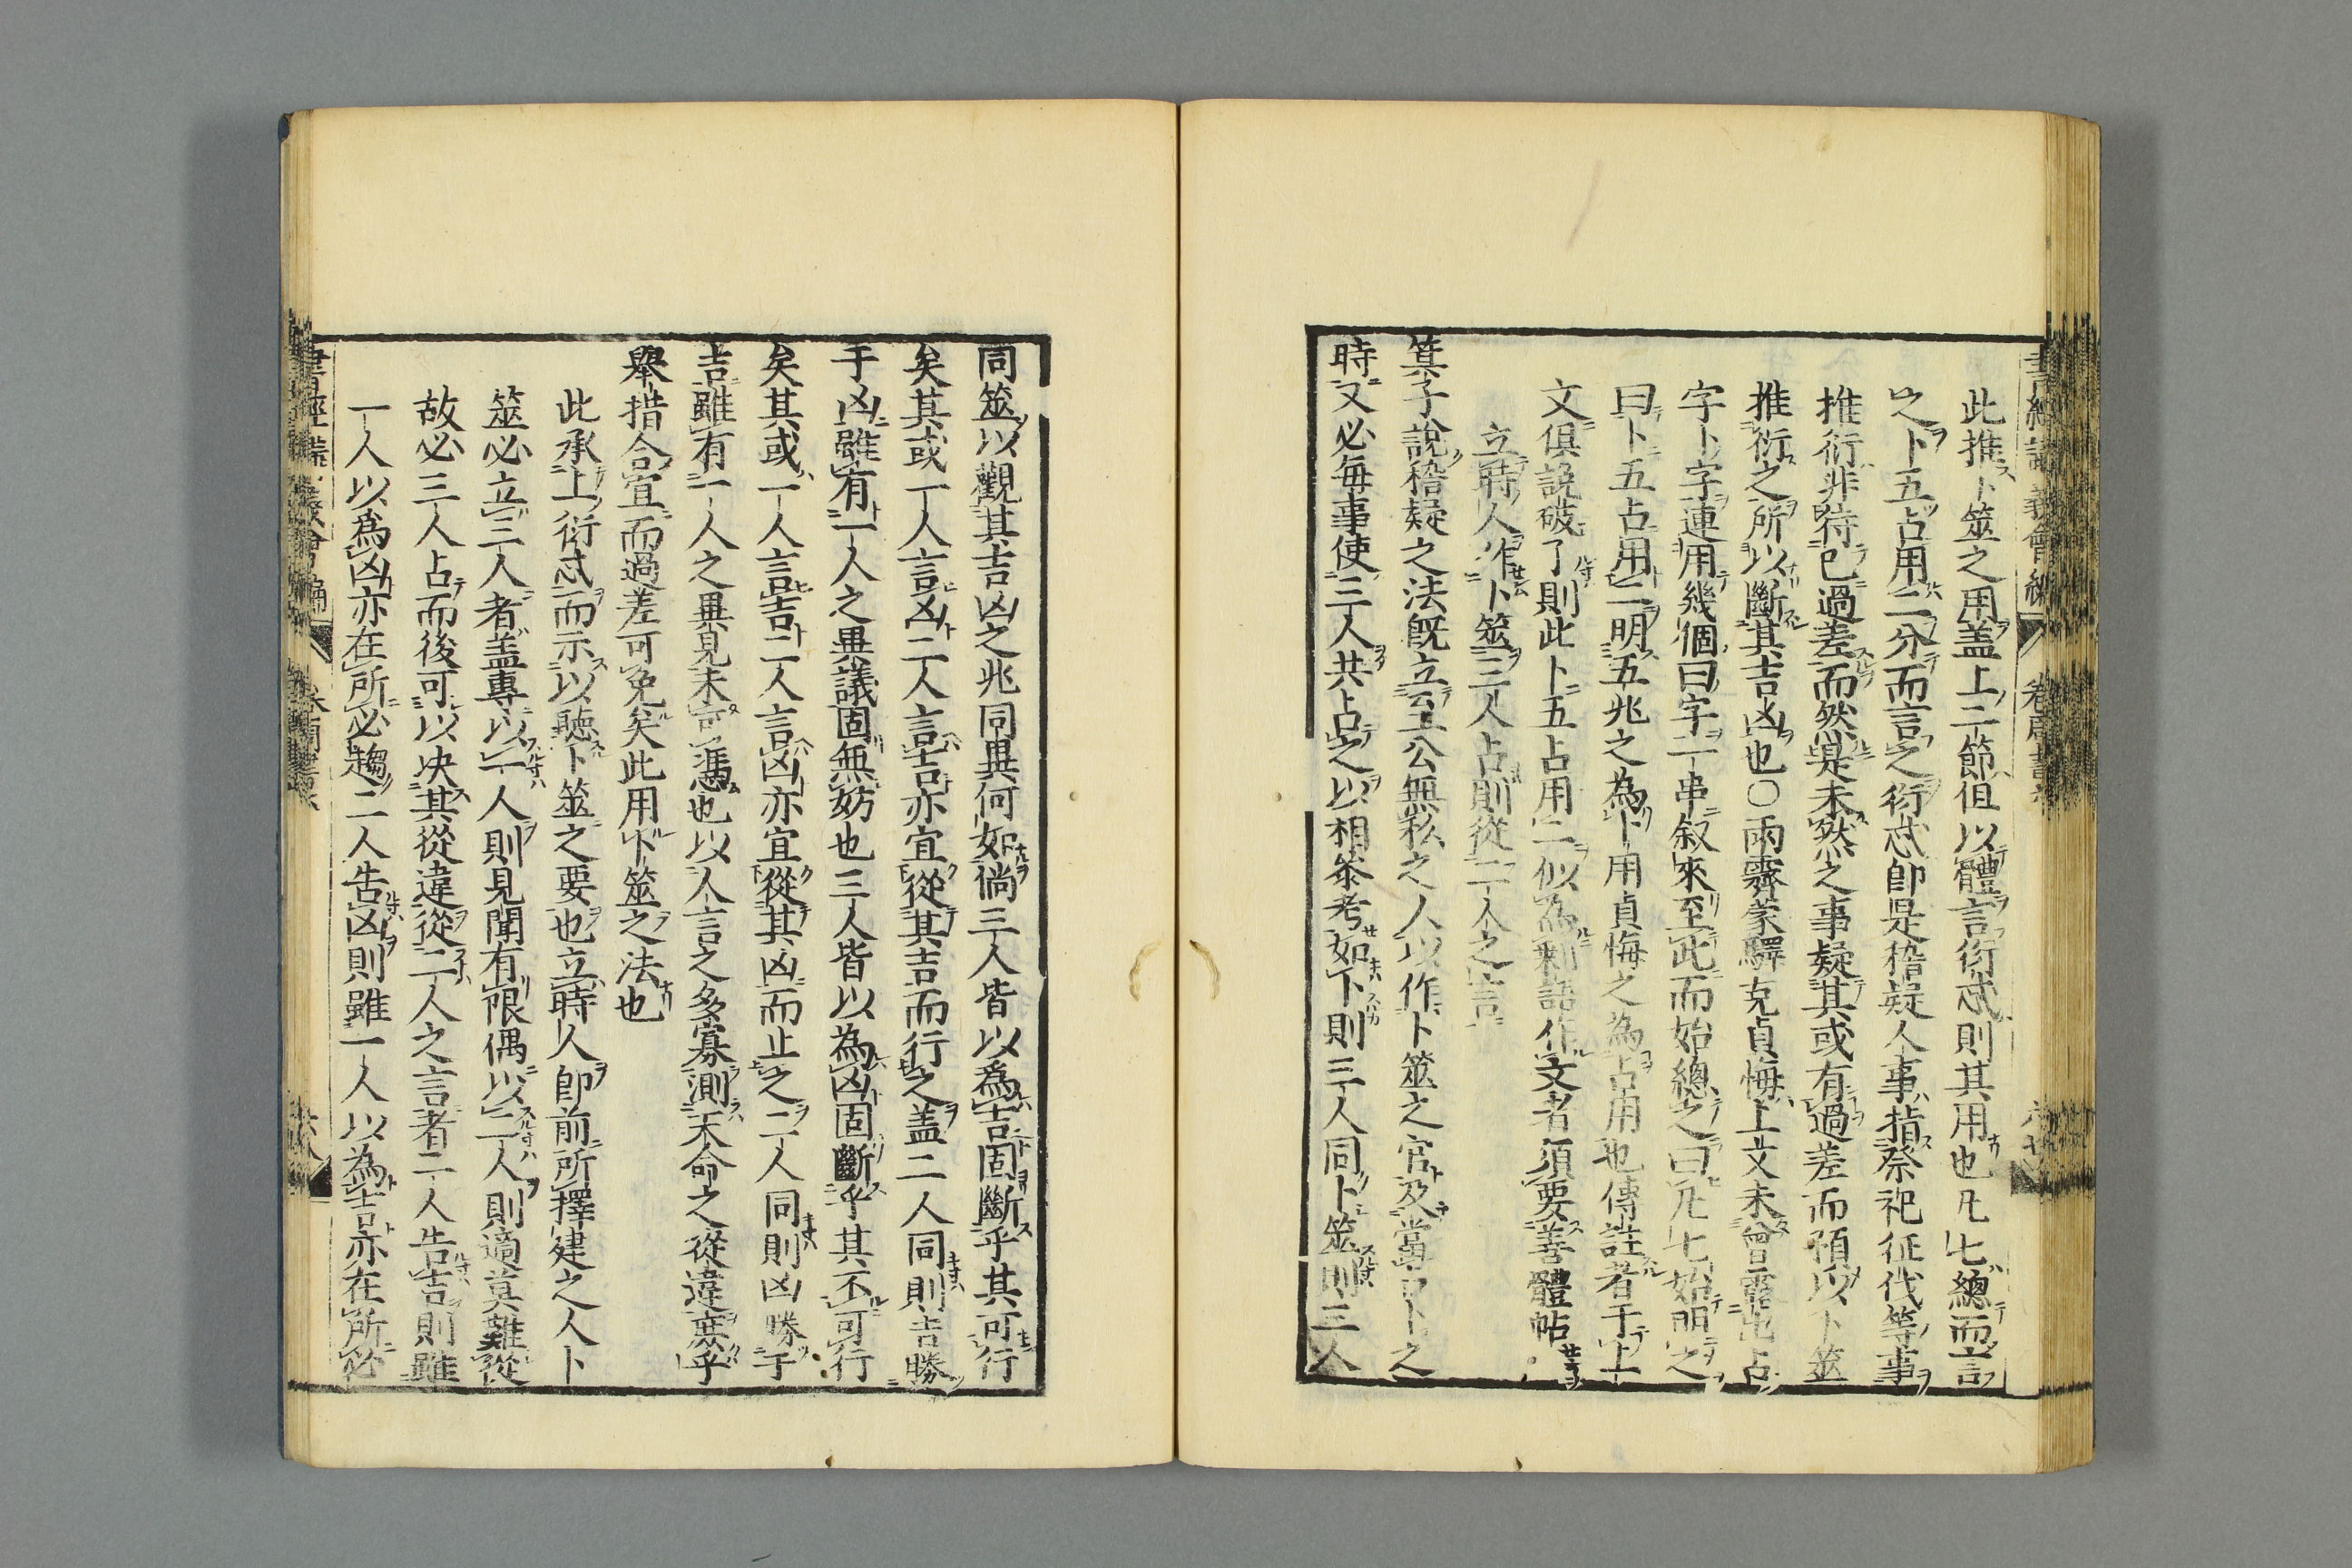 此推卜筮之用盖上二節但以體言衍忒則其用也凡七總而言
之卜五占用二分而言之衍忒卽是稽疑人事指祭祀征伐等事
推衍非待已過差而然是未然之事疑其或有過差而預以卜筮
推衍之所以斷其吉凶也〇雨霽蒙驛克貞悔上文未曾露出占
字卜字連用幾個曰字一串叙來至此而始總之曰凡七始明之
曰卜五占用二明五兆之為卜用貞悔之為占用也傳註者于上
文俱說破了則此卜五占用二似為剩語作文者須要善體帖
立時人作卜筮三人占則從二人之言
箕子說稽疑之法旣立至公無私之人以作卜筮之官及當卜之
時又必每事使三人共占之以相叅考如卜則三人同卜筮則三人
同筮以觀其吉凶之兆同異何如倘三人皆以爲吉固斷乎其可行
矣其或一人言凶二人言吉亦宜從其吉而行之盖二人同則吉勝
于凶雖有一人之異議固無妨也三人皆以為凶固斷乎其不可行
矣其或一人言吉二人言凶亦宜從其凶而止之二人同則凶勝于
吉雖有一人之異見未可憑也以人言之多寡測天命之從違庶乎
舉措合宜而過差可免矣此用卜筮之法也
此承上衍忒而示以聽卜筮之要也立時人卽前所擇建之人卜
筮必立三人者盖專以一人則見聞有限偶以二人則適莫難從
故必三人占而後可以决其從違從二人之言者二人告吉則雖
一人以為凶亦在所必趨二人告凶則雖一人以為吉亦在所必